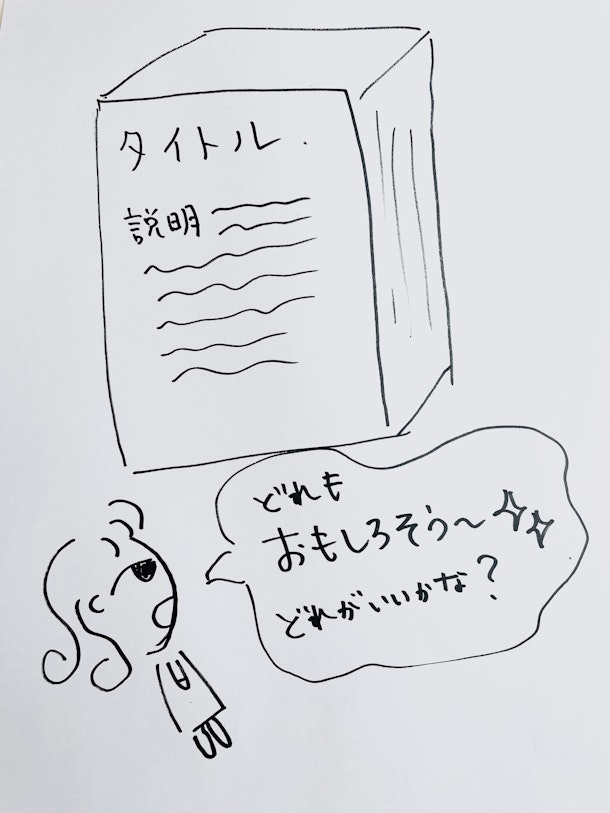 タイトル.
説明
どれも
おもしろそう〜
どれがいいかな?